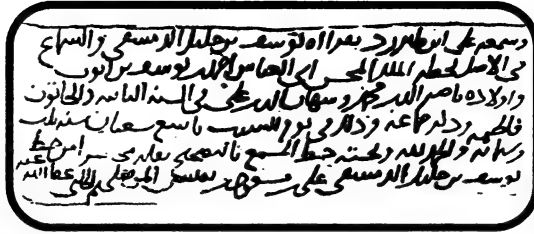 وسمعه على ابن طبرزد بقراءة يوسف بن خليل الدمشقي والسماع
في الاصل بخطه الملك المحسن ابي العباس احمد بن يوسف بن ايوب
واولاده ناصر الدين محمد وشهاب الدين علي في السنة الثالثة والخاتون
فاطمة وجماعة وذلك في يوم السبت تاسع شعبان سنة ثلاث
وستمائة والحمد لله وصحته بخط المسمع بالصحيح نقله من خط
يوسف بن خليل الدمشقي علي بن مسعود بن نفيس الموصلي الحلبي عفا الله عنه